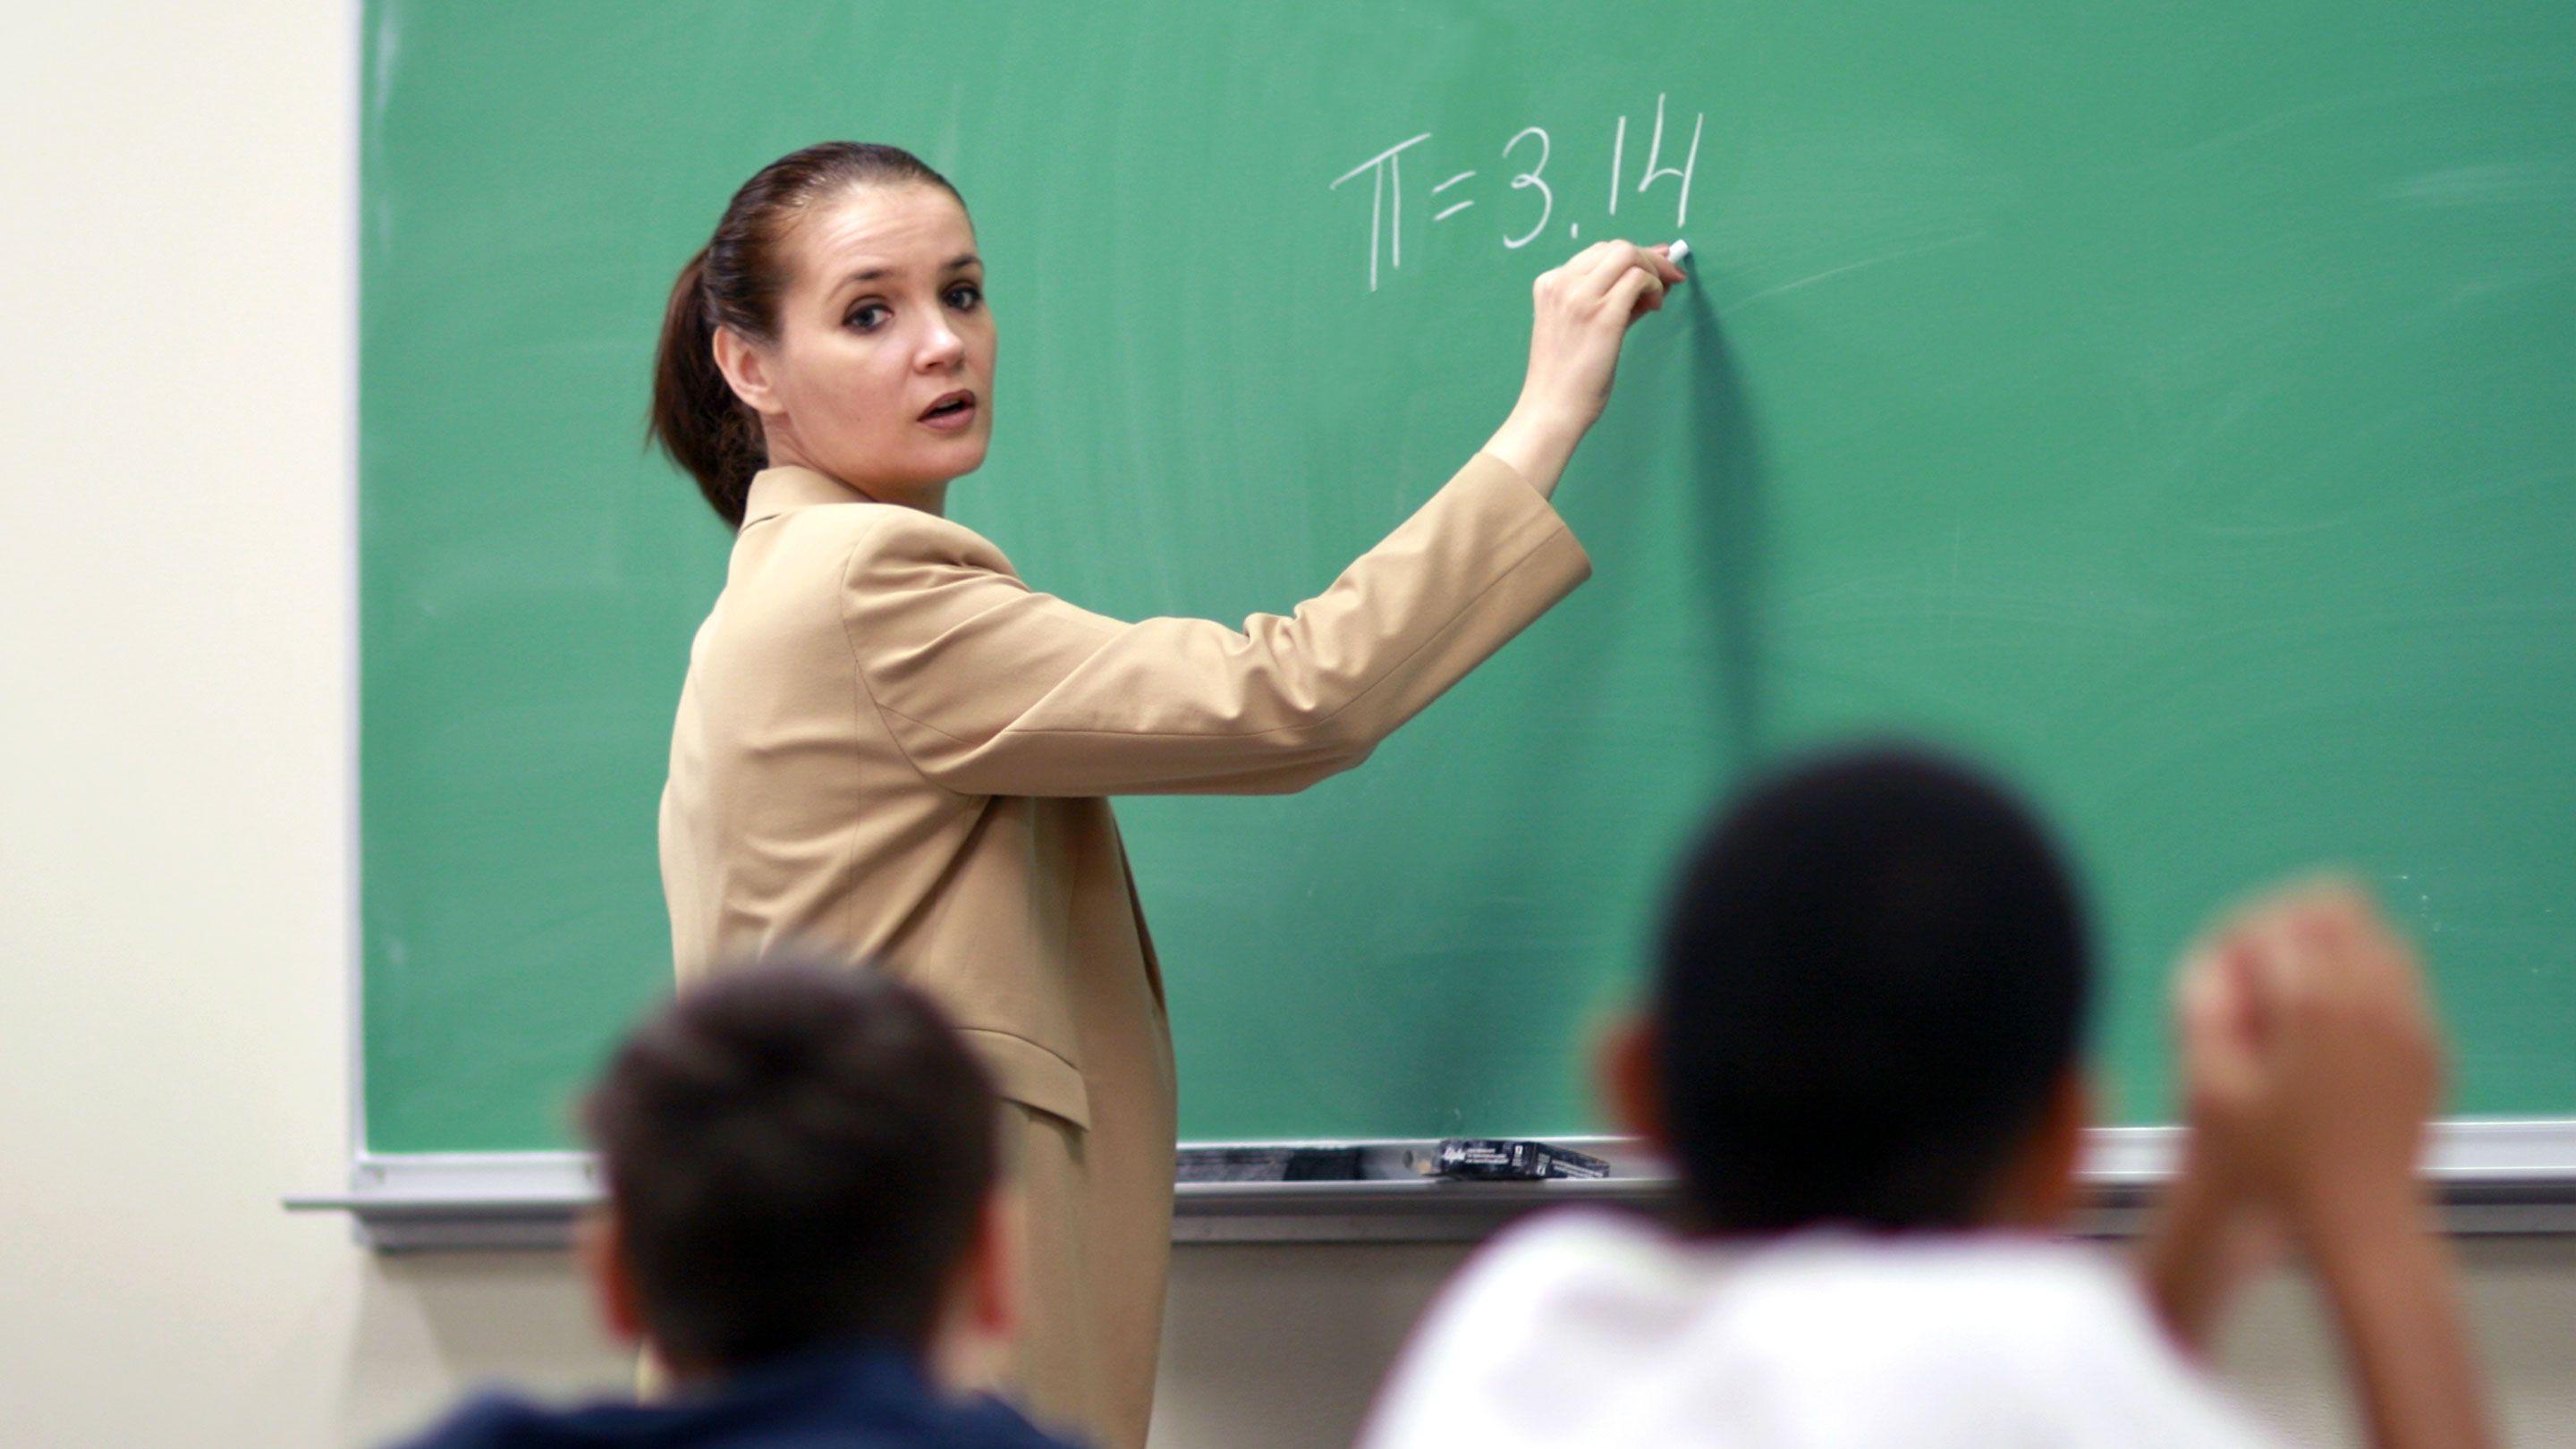 π=3.14